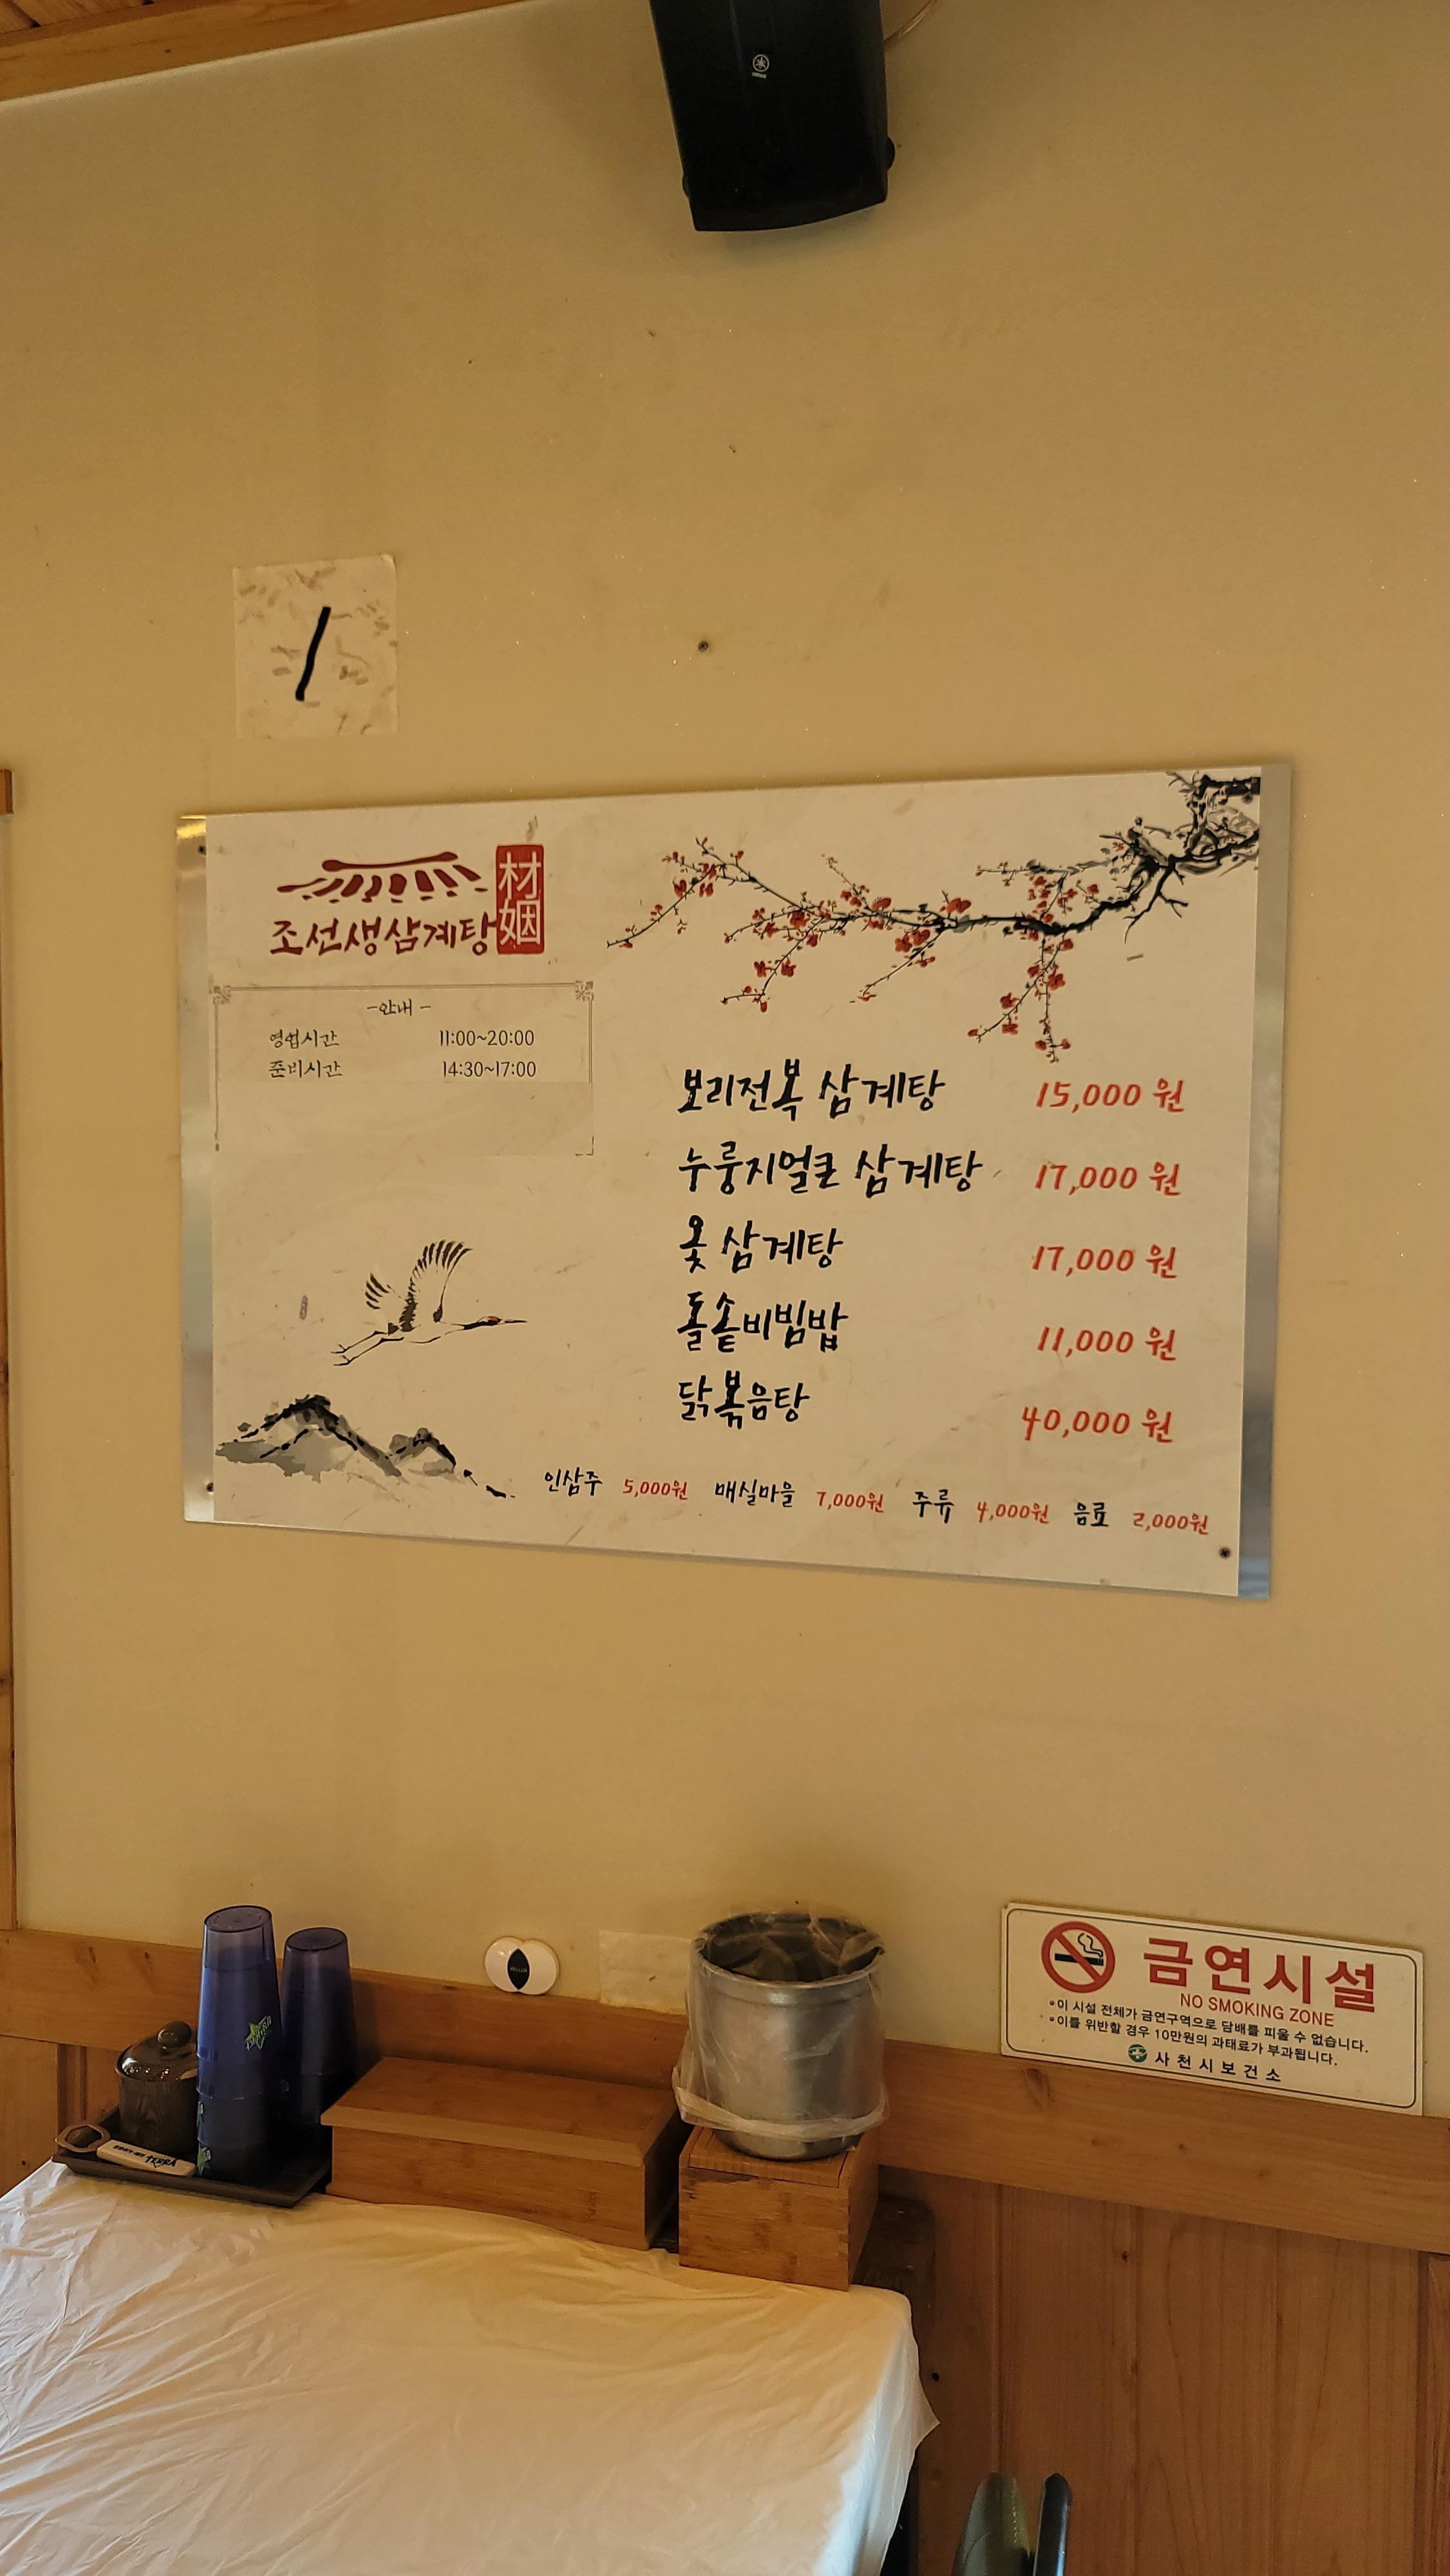 1
조선생삼계탕
材
姻
-안내-
영업시간 11:00~20:00
준비시간 14:30~17:00
보리전복 삼계탕 15,000 원
누룽지얼큰 삼계탕 17,000 원
옻 삼계탕 17,000 원
돌솥비빔밥 11,000 원
닭볶음탕 40,000 원
인삼주 5,000원 매실마을 7,000원 주류 4,000원 음료 2,000원
금연시설
NO SMOKING ZONE
이 시설 전체가 금연구역으로 담배를 피울 수 없습니다.
이를 위반할 경우 10만원의 과태료가 부과됩니다.
사천시보건소
TERRA